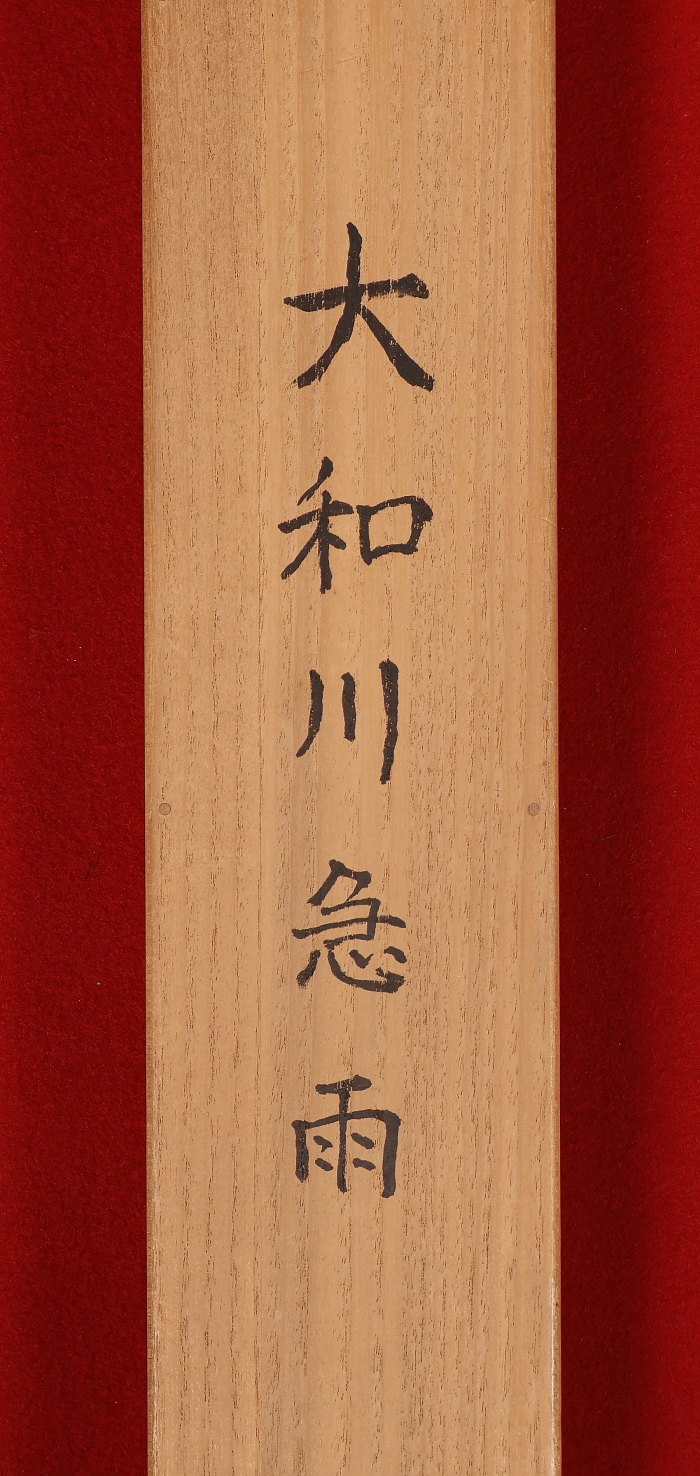 大和川急雨